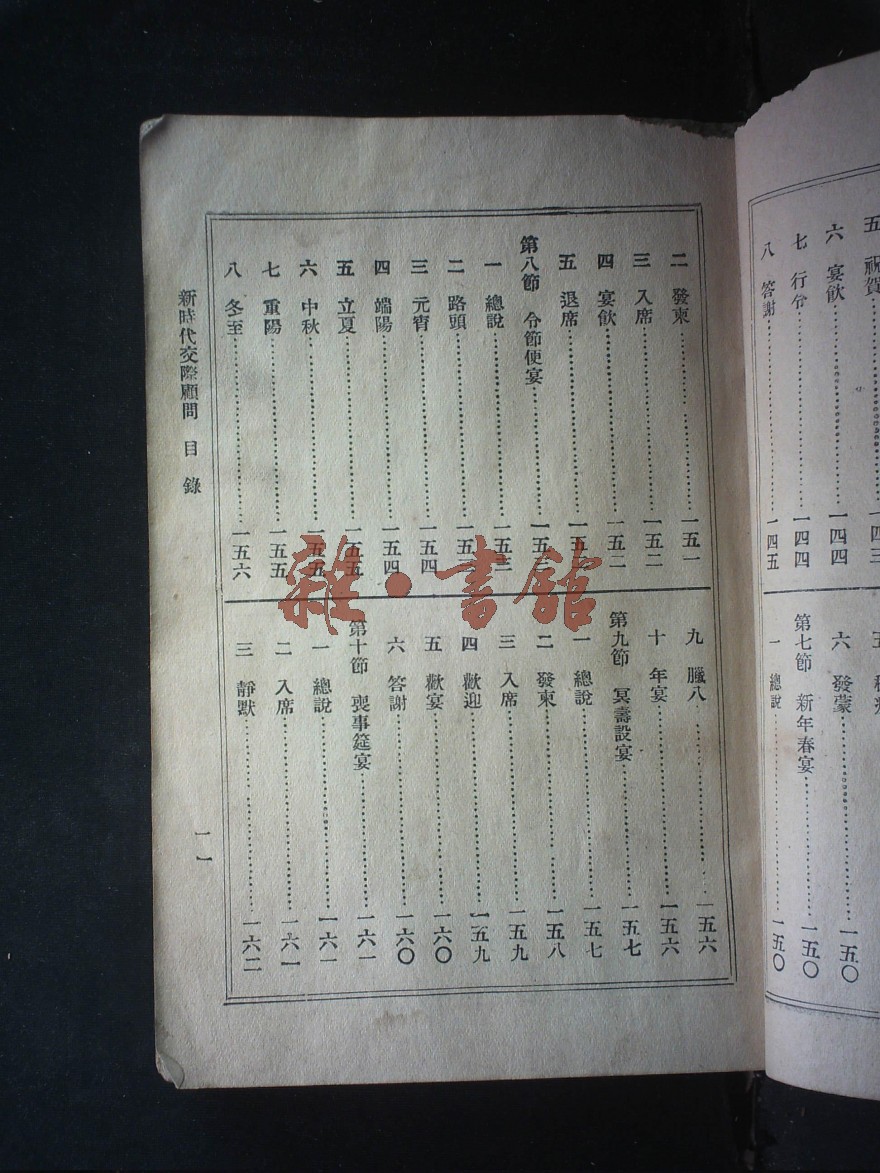 五 祝賀……一四三
六 宴飲……一四四
七 行令……一四四
八 答謝……一四五
五
六 發蒙……一五〇
第七節 新年春宴……一五〇
一 總說……一五〇
二 發柬……一五一
三 入席……一五二
四 宴飲……一五二
五 退席……一五
第八節 令節便宴……一五三
一 總說……一五三
二 路頭……一五
三 元宵……一五四
四 端陽……一五四
五 立夏……一五五
六 中秋……一五五
七 重陽……一五五
八 冬至……一五六
九 臘八……一五六
十 年宴……一五六
第九節 冥壽設宴……一五七
一 總說……一五七
二 發柬……一五八
三 入席……一五九
四 歡迎……一五九
五 歡宴……一六〇
六 答謝……一六〇
第十節 喪事筵宴……一六一
一 總說……一六一
二 入席……一六一
三 靜默……一六二
新時代交際顧問 目錄
一一
雜·書館